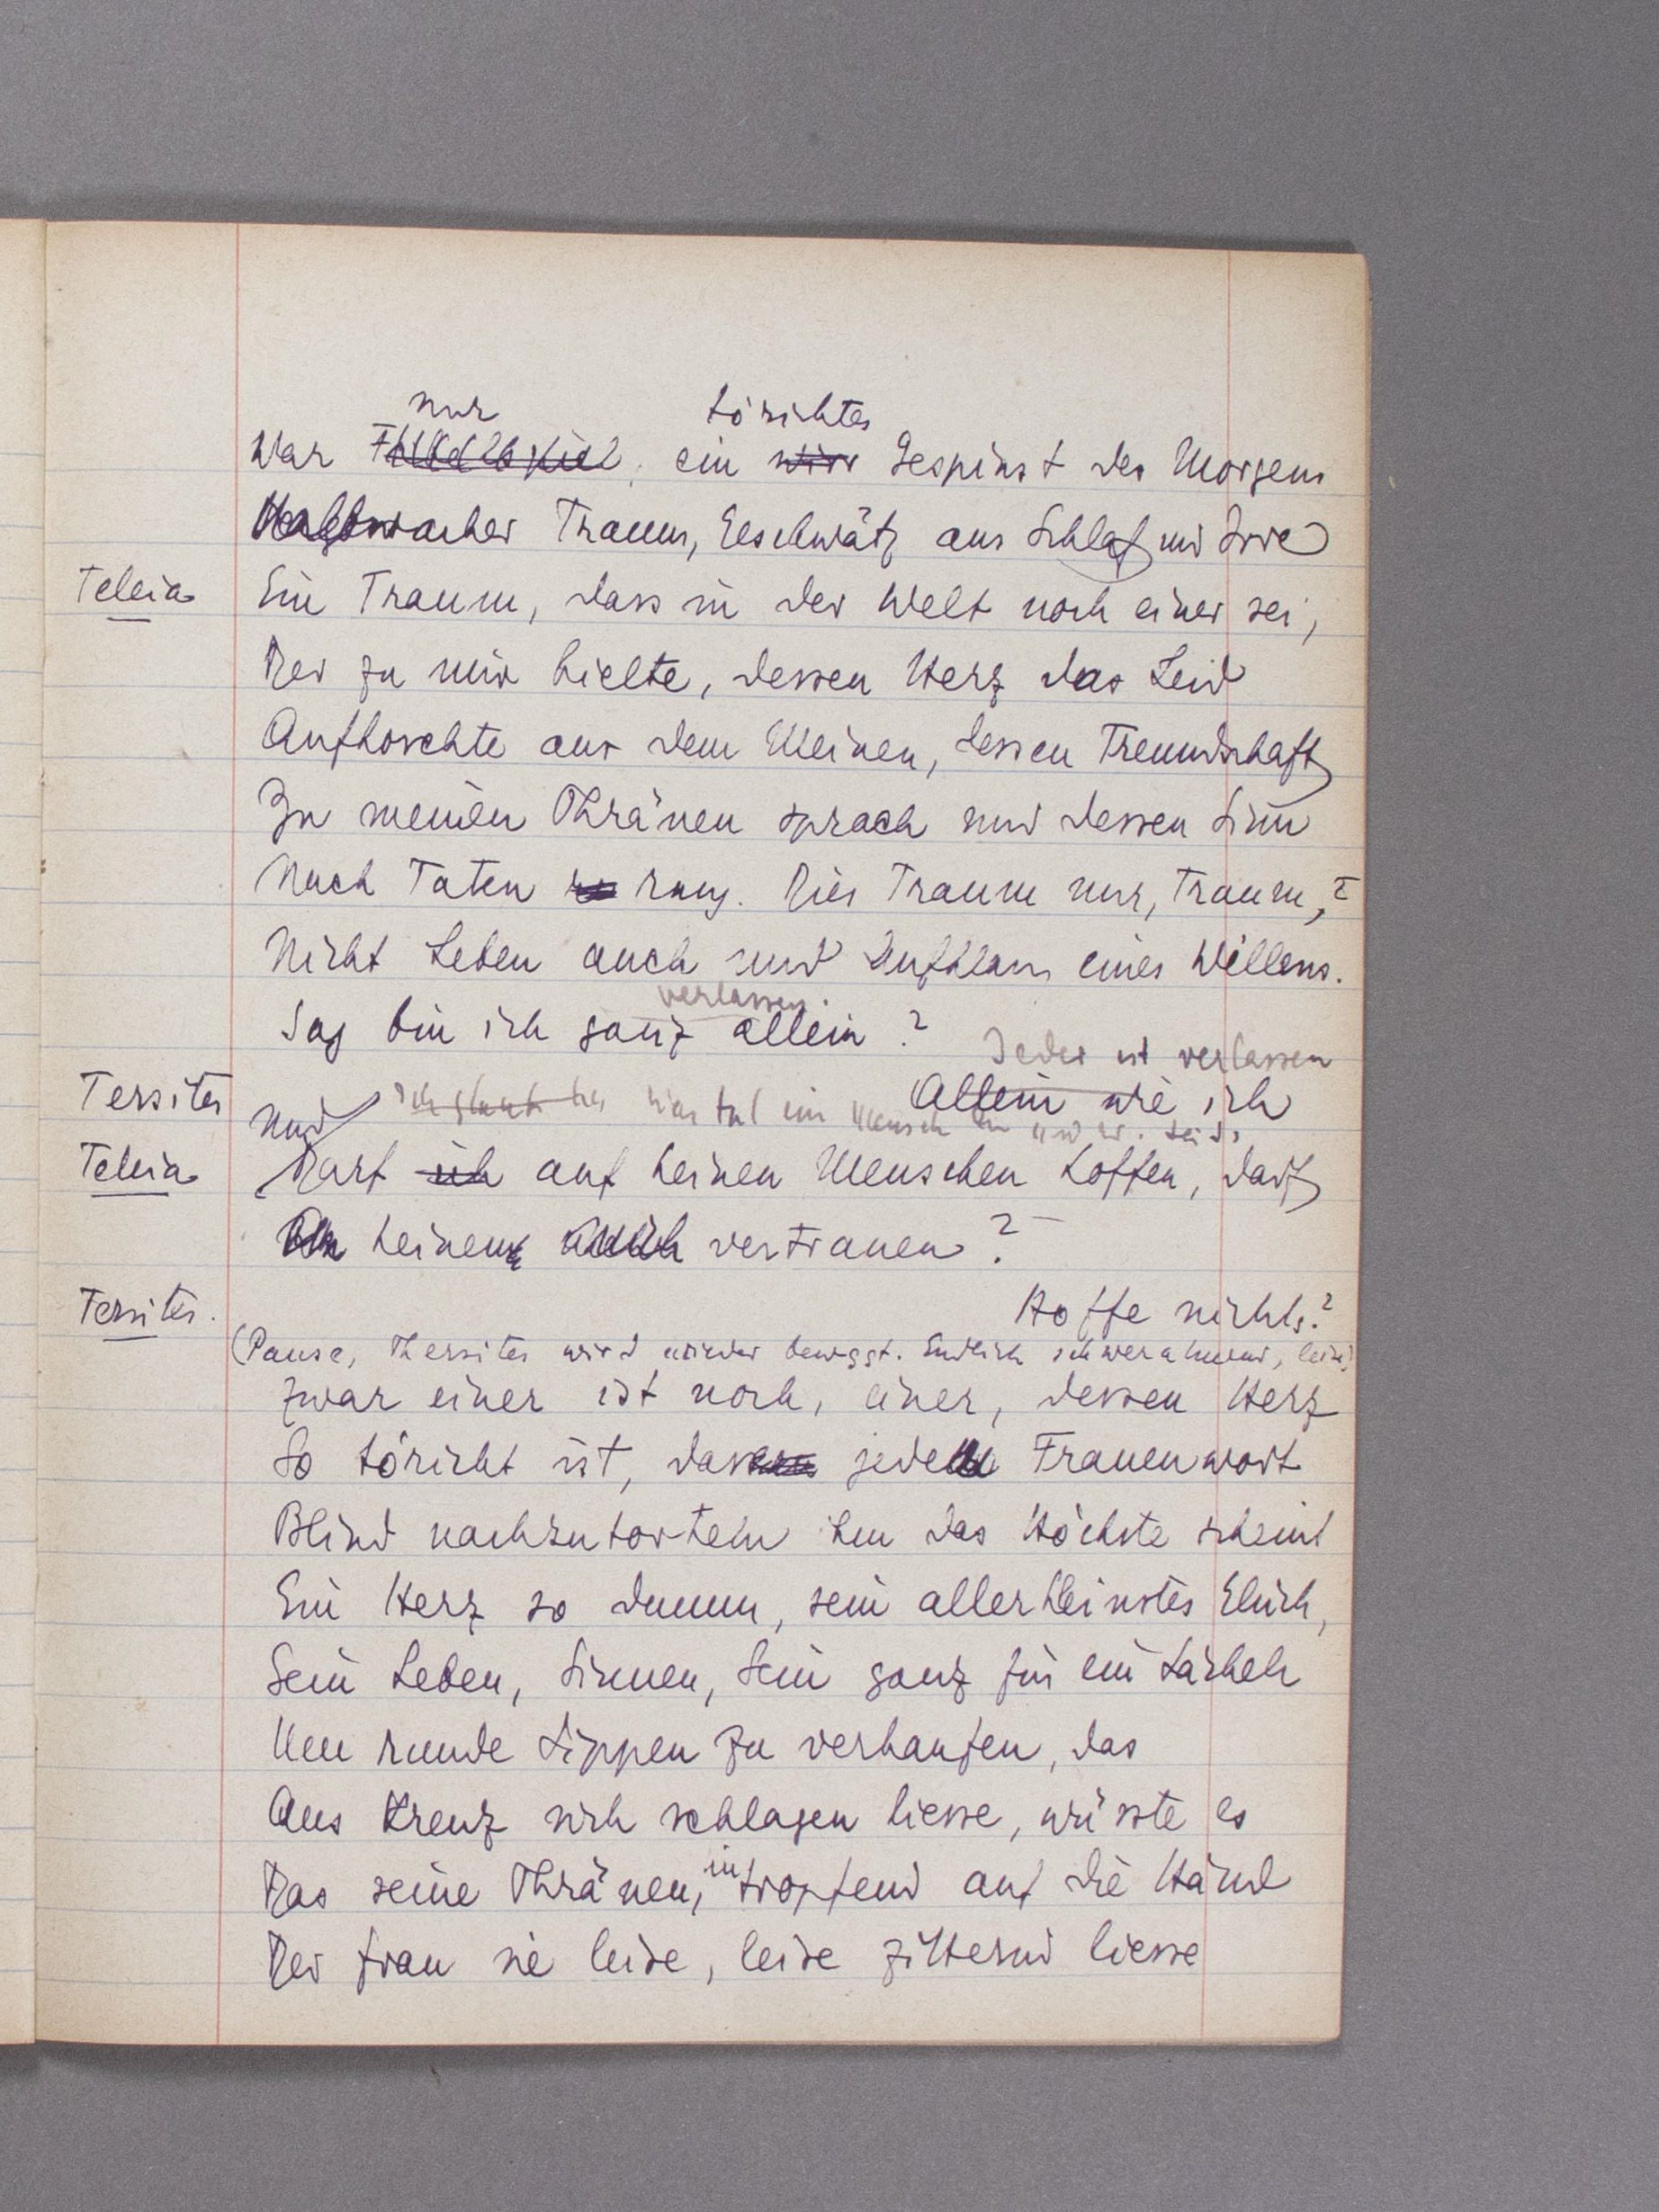 nur törichtes
War ein wirr Gespinst des Morgens
Halbwacher Traum, Geschwätz aus Schlaf und Irre
Teleia Ein Traum, dass in der Welt noch einer sei,
Der zu mir hielte, dessen Herz das Leid
Aufhorchte aus dem Meinen, dessen Freundschaft
Zu meinen Thränen sprach und dessen Sinn
Nach Taten rang. Dies Traum nur, Traum,?
Nicht Leben auch und eines Willens.
verlassen
Sag bin ich ganz allein?
Jeder ist verlassen
Tersites Allein wie ich
Und ein Mensch
Teleia Darf ich auf keinen Menschen hoffen, darf
keinem vertrauen?
Tersites. Hoffe nichts?
(Pause, Thersites wird wieder bewegt. Endlich schweratmend, leise)
Zwar einer ist noch, einer, dessen Herz
So töricht ist, dass jedem Frauenwort
Blind nachzutorkeln ihm das Höchste scheint
Ein Herz so dumm, sein allerkleinstes Glück,
Sein Leben, Sinnen, Sein ganz für ein Lächeln
Um runde Lippen zu verkaufen, das
Ans Kreuz sich schlagen liesse, wüsste es
Das seine Thränen, tropfend auf die Händ
Der Frau sie leise, leise zitternd liesse